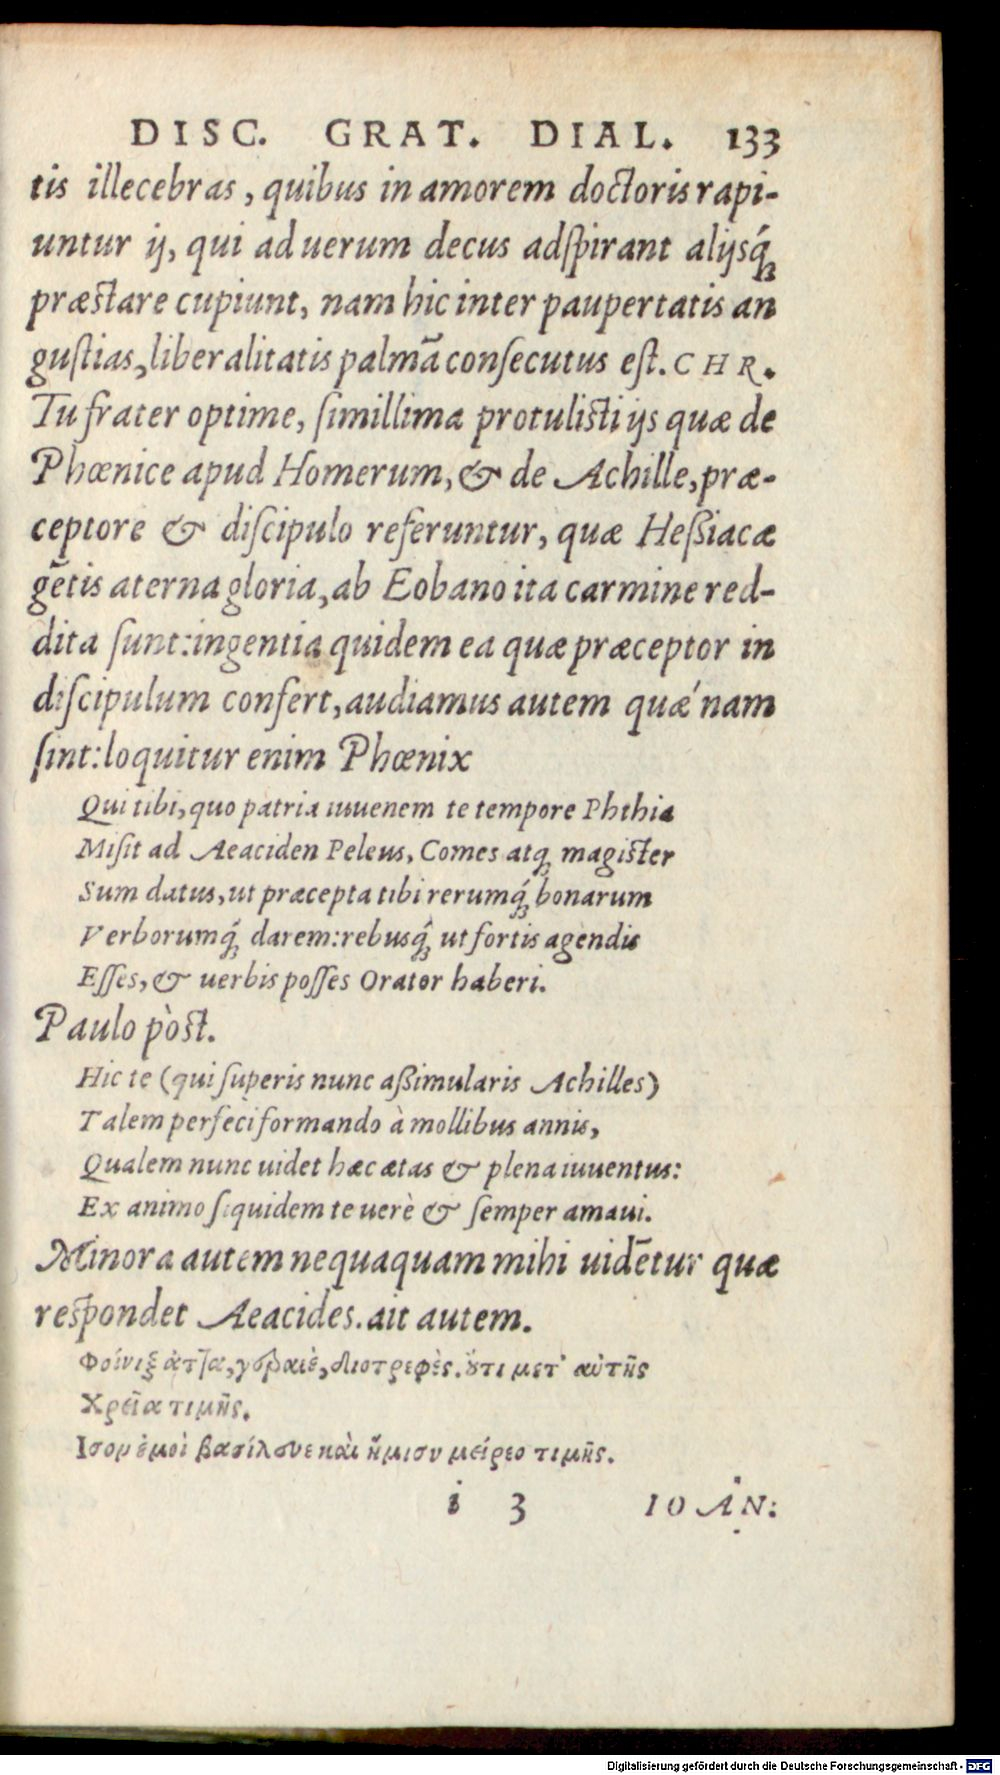 DISC. GRAT. DIAL. 133
tis illecebras, quibus in amorem doctoris rapi-
untur ij, qui ad uerum decus adſpirant alijsq́;
præstare cupiunt, nam hic inter paupertatis an
guſtias, liberalitatis palmā conſecutus eſt. CHR.
Tu frater optime, ſimillima protulisti ijs quæ de
Phœnice apud Homerum, & de Achille, præ-
ceptore & diſcipulo referuntur, quæ Heßiacæ
gētis aterna gloria, ab Eobano ita carmine red-
dita ſunt: ingentia quidem ea quæ præceptor in
diſcipulum confert, audiamus autem quǽ nam
ſint: loquitur enim Phœnix
Qui tibi, quo patria iuuenem te tempore Phthia
Miſit ad Aeaciden Peleus, Comes atq; magister
Sum datus, ut præcepta tibi rerumq́; bonarum
Verborumq́; darem: rebusq́; ut fortis agendis
Eſſes, & uerbis poſſes Orator haberi.
Paulo pòst.
Hic te (qui ſuperis nunc aßimularis Achilles)
Talem perfeci formando à mollibus annis,
Qualem nunc uidet hæc ætas & plena iuuentus:
Ex animo ſiquidem te uerè & ſemper amaui.
Minora autem nequaquam mihi uidētur quæ
respondet Aeacides. ait autem.
Φοίνιξ ἄττα, γεραιὲ, διοτρεφὲς. ὄτι μετ' αὐτῆς
Χρεῖα τιμῆς.
Ισον ἐμοὶ βασίλευε καὶ ἥμισυ μείρεο τιμῆς.
i 3 IOAN:
Digitalisierung gefördert durch die Deutsche Forschungsgemeinschaft - DFG